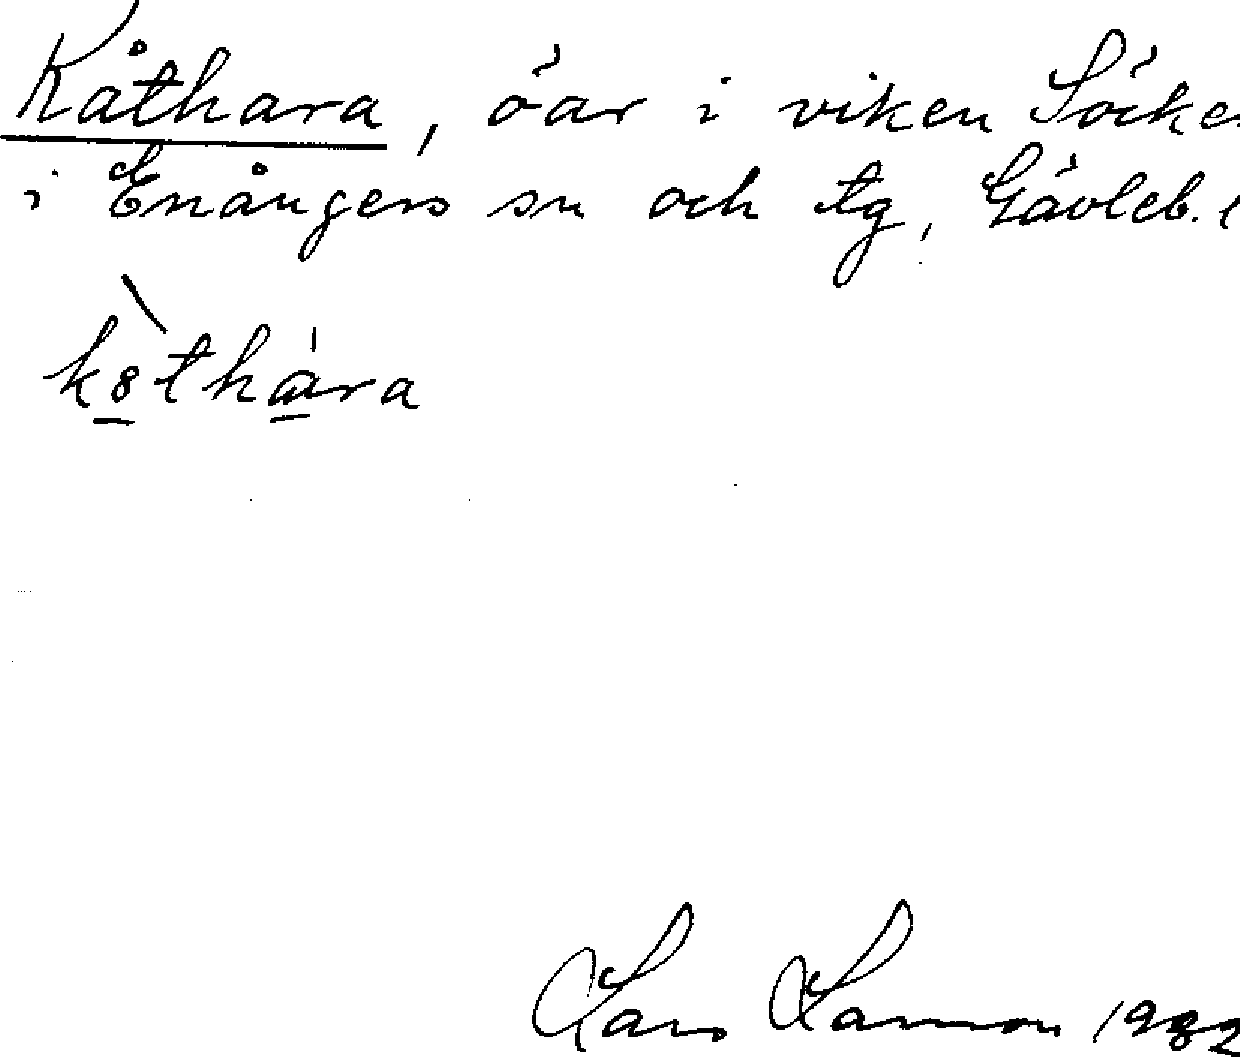 Kåthara, öar i viken Söcke
i Enångers sn och tg, Gävleb. l
kåthara
Lars Larsson 1982